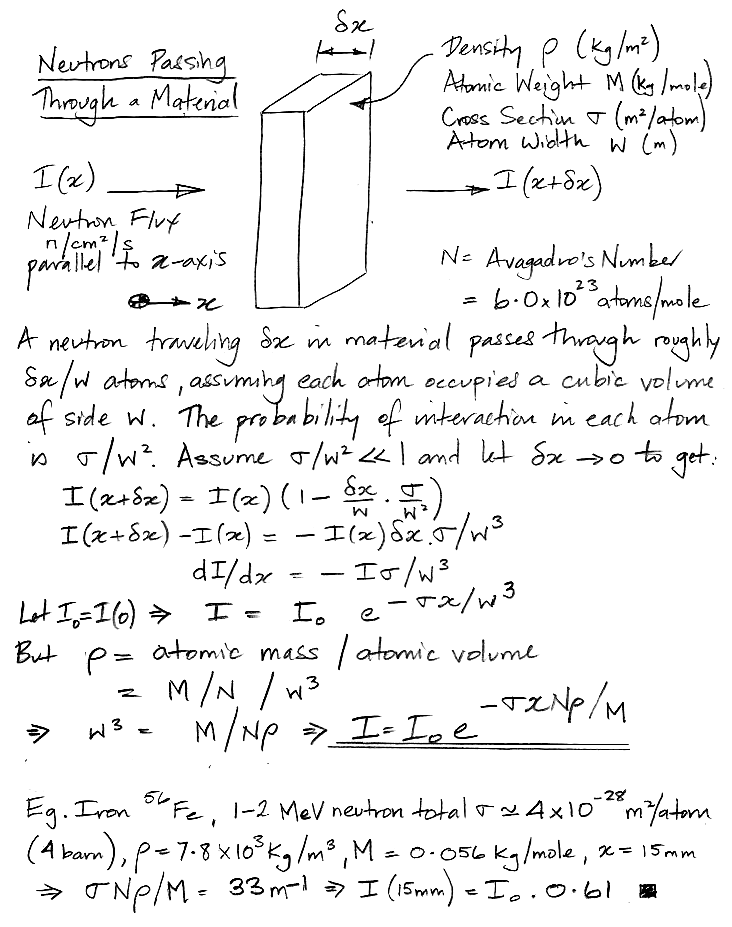 δx
Neutrons Passing
Through a Material
Density ρ (kg/m²)
Atomic Weight M (kg/mole)
Cross Section σ (m²/atom)
Atom Width W (m)
I(x)
I(x+δx)
Neutron Flux
n/cm²/s
parallel to x-axis
x
N = Avagadro's Number
= 6.0x10²³ atoms/mole
A neutron traveling δx in material passes through roughly
δx/w atoms, assuming each atom occupies a cubic volume
of side w. The probability of interaction in each atom
is σ/w². Assume σ/w² << 1 and let δx → 0 to get:
I(x+δx) = I(x) (1 - δx/w . σ/w²)
I(x+δx) - I(x) = - I(x) δx.σ/w³
dI/dx = - Iσ/w³
Let I₀=I(0) ⇒ I = I₀ e^(-σx/w³)
But ρ = atomic mass / atomic volume
= M/N / w³
⇒ w³ = M/Nρ ⇒ I = I₀ e^(-σxNρ/M)
Eg. Iron ⁵⁶Fe, 1-2 MeV neutron total σ ≃ 4x10⁻²⁸ m²/atom
(4 barn), ρ = 7.8x10³ Kg/m³, M = 0.056 kg/mole, x = 15mm
⇒ σNρ/M = 33m⁻¹ ⇒ I(15mm) = I₀ . 0.61 ■